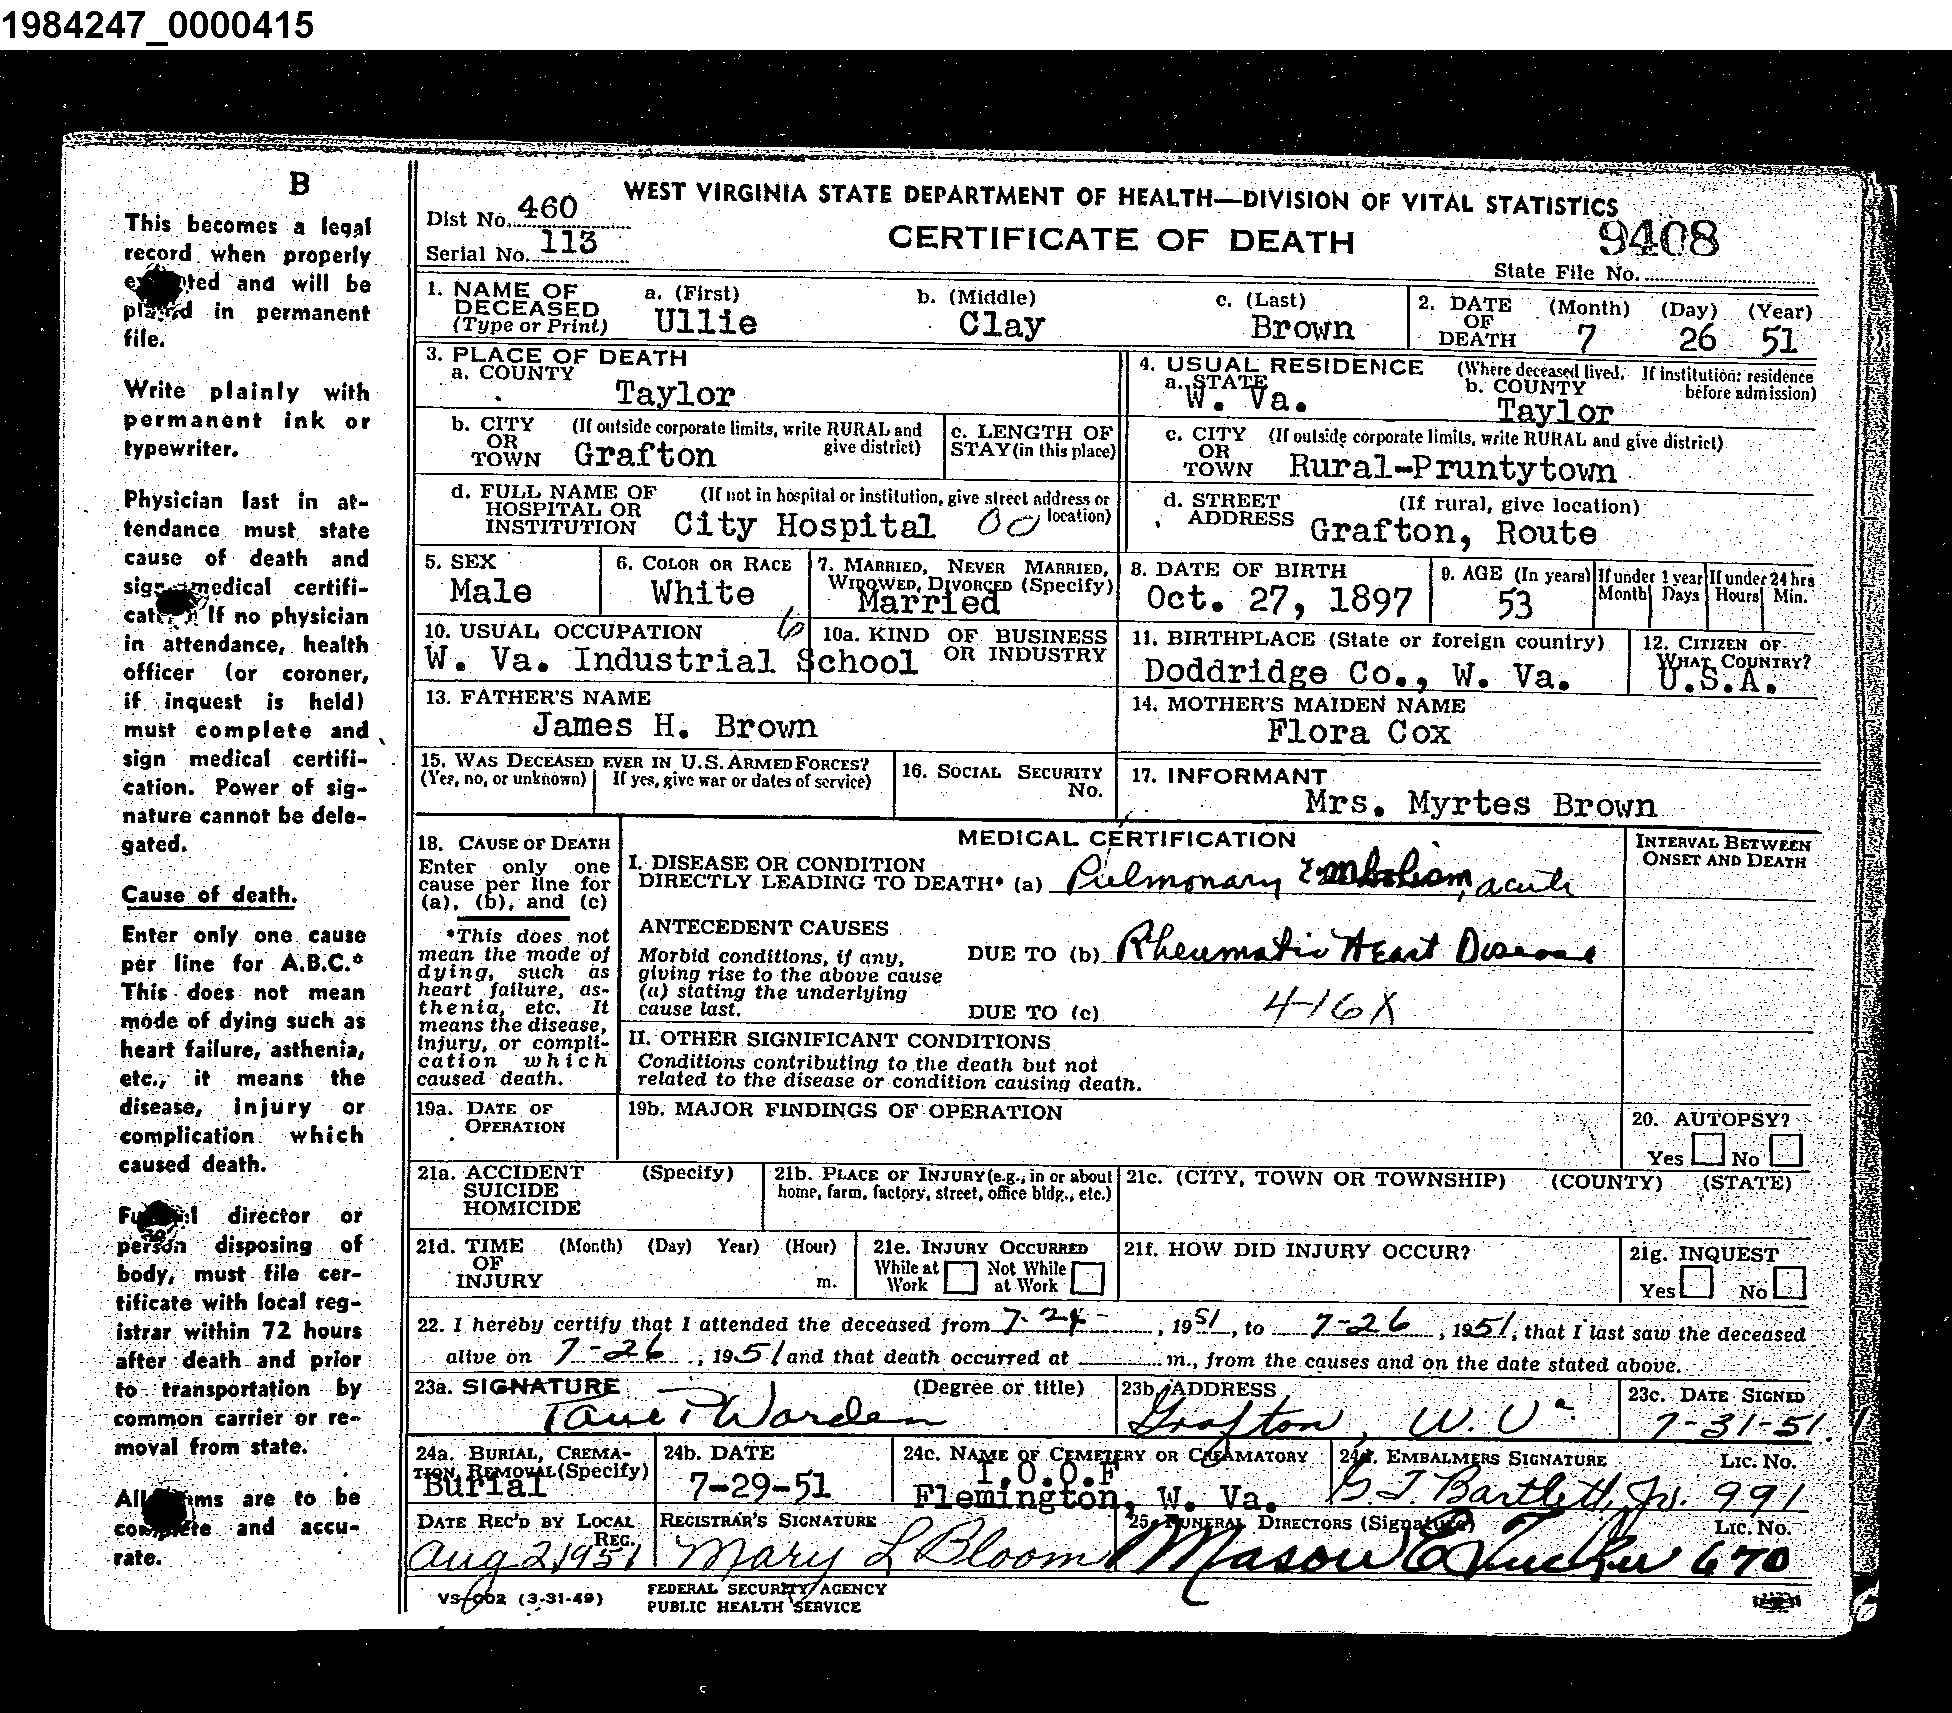 1984247_0000415
B
This becomes a legal
record when properly
and will be
in permanent
file.
Write plainly with
permanent ink or
typewriter.
Physician last in at-
tendance must state
cause of death and
medical certifi-
If no physician
in attendance, health
officer (or coroner,
if inquest is held)
must complete and
sign medical certifi-
cation. Power of sig-
nature cannot be dele-
gated.
Cause of death.
Enter only one cause
per line for A.B.C.*
This does not mean
mode of dying such as
heart failure, asthenia,
etc., it means the
disease, injury or
complication which
caused death.
director or
person disposing of
body, must file cer-
tificate with local reg-
istrar within 72 hours
after death and prior
to transportation by
common carrier or re-
moval from state.
are to be
and accu-
rate.
WEST VIRGINIA STATE DEPARTMENT OF HEALTH—DIVISION OF VITAL STATISTICS
Dist No. 460
Serial No. 113
CERTIFICATE OF DEATH
9408
State File No.
1. NAME OF DECEASED (Type or Print) a. (First) Ullie b. (Middle) Clay c. (Last) Brown
2. DATE OF DEATH (Month) 7 (Day) 26 (Year) 51
3. PLACE OF DEATH
a. COUNTY Taylor
4. USUAL RESIDENCE (Where deceased lived. If institution: residence before admission)
a. STATE W. Va. b. COUNTY Taylor
b. CITY OR TOWN (If outside corporate limits, write RURAL and give district) Grafton
c. LENGTH OF STAY (in this place)
c. CITY OR TOWN (If outside corporate limits, write RURAL and give district) Rural-Pruntytown
d. FULL NAME OF HOSPITAL OR INSTITUTION (If not in hospital or institution, give street address or location) City Hospital 00
d. STREET ADDRESS (If rural, give location) Grafton, Route
5. SEX Male
6. COLOR OR RACE White
7. MARRIED, NEVER MARRIED, WIDOWED, DIVORCED (Specify) Married
8. DATE OF BIRTH Oct. 27, 1897
9. AGE (In years) 53 If under 1 year Month Days If under 24 hrs Hours Min.
10. USUAL OCCUPATION 6
W. Va. Industrial School
10a. KIND OF BUSINESS OR INDUSTRY
11. BIRTHPLACE (State or foreign country) Doddridge Co., W. Va.
12. CITIZEN OF WHAT COUNTRY? U.S.A.
13. FATHER'S NAME James H. Brown
14. MOTHER'S MAIDEN NAME Flora Cox
15. WAS DECEASED EVER IN U.S. ARMED FORCES?
(Yes, no, or unknown) If yes, give war or dates of service)
16. SOCIAL SECURITY No.
17. INFORMANT Mrs. Myrtes Brown
18. CAUSE OF DEATH
Enter only one
cause per line for
(a), (b), and (c)
*This does not
mean the mode of
dying, such as
heart failure, as-
thenia, etc. It
means the disease,
injury, or compli-
cation which
caused death.
MEDICAL CERTIFICATION
INTERVAL BETWEEN ONSET AND DEATH
I. DISEASE OR CONDITION
DIRECTLY LEADING TO DEATH* (a) Pulmonary Embolism, acute
ANTECEDENT CAUSES
Morbid conditions, if any,
giving rise to the above cause
(a) stating the underlying
cause last.
DUE TO (b) Rheumatic Heart Disease
DUE TO (c) 416X
II. OTHER SIGNIFICANT CONDITIONS
Conditions contributing to the death but not
related to the disease or condition causing death.
19a. DATE OF OPERATION
19b. MAJOR FINDINGS OF OPERATION
20. AUTOPSY?
Yes No
21a. ACCIDENT SUICIDE HOMICIDE (Specify)
21b. PLACE OF INJURY (e.g., in or about home, farm, factory, street, office bldg., etc.)
21c. (CITY, TOWN OR TOWNSHIP) (COUNTY) (STATE)
21d. TIME OF INJURY (Month) (Day) Year) (Hour) m.
21e. INJURY OCCURRED
While at Work Not While at Work
21f. HOW DID INJURY OCCUR?
21g. INQUEST
Yes No
22. I hereby certify that I attended the deceased from 7-24-, 1951, to 7-26, 1951, that I last saw the deceased
alive on 7-26, 1951 and that death occurred at m., from the causes and on the date stated above.
23a. SIGNATURE (Degree or title) Warden
23b. ADDRESS Grafton, W. Va.
23c. DATE SIGNED 7-31-51
24a. BURIAL, CREMATION, REMOVAL (Specify) Burial
24b. DATE 7-29-51
24c. NAME OF CEMETERY OR CREAMATORY I.O.O.F
Flemington, W. Va.
24d. EMBALMERS SIGNATURE LIC. NO.
G. T. Bartlett, Jr. 991
DATE REC'D BY LOCAL REG. Aug 2 1951
REGISTRAR'S SIGNATURE Mary L Bloom
25. FUNERAL DIRECTORS (Signature) LIC. NO.
Mason E Tucker 670
VS-002 (3-31-49)
FEDERAL SECURITY AGENCY
PUBLIC HEALTH SERVICE